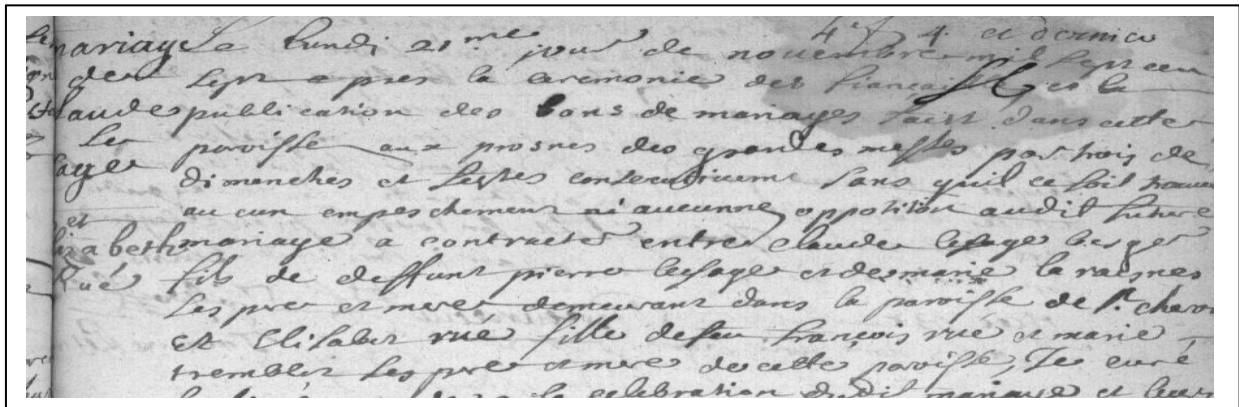 4e f 4. et dernier
mariage Le Lundi 21me jour de novembre mil sept cen
de sept apres la ceremonie des fiancailles et la
claude publication des bans de mariages faist dans cette
Le paroisse aux prosnes des grandes messes par trois de
sage dimanches et festes consecutivement sans quil ce soit trouue
et aucun empeschement ni aucunne opposition audit future
lisabeth mariage a contracter entre claude lesage berger
Rué fils de deffunt pierre lesage et de marie la raisnes
ses pere et mere demeurant dans la paroisse de st. cheron
et Elisabet rué fille de feu françois rué et marie
trembler ses pere et mere de cette paroisse, Je curé
la celebration dudit mariage et leurs